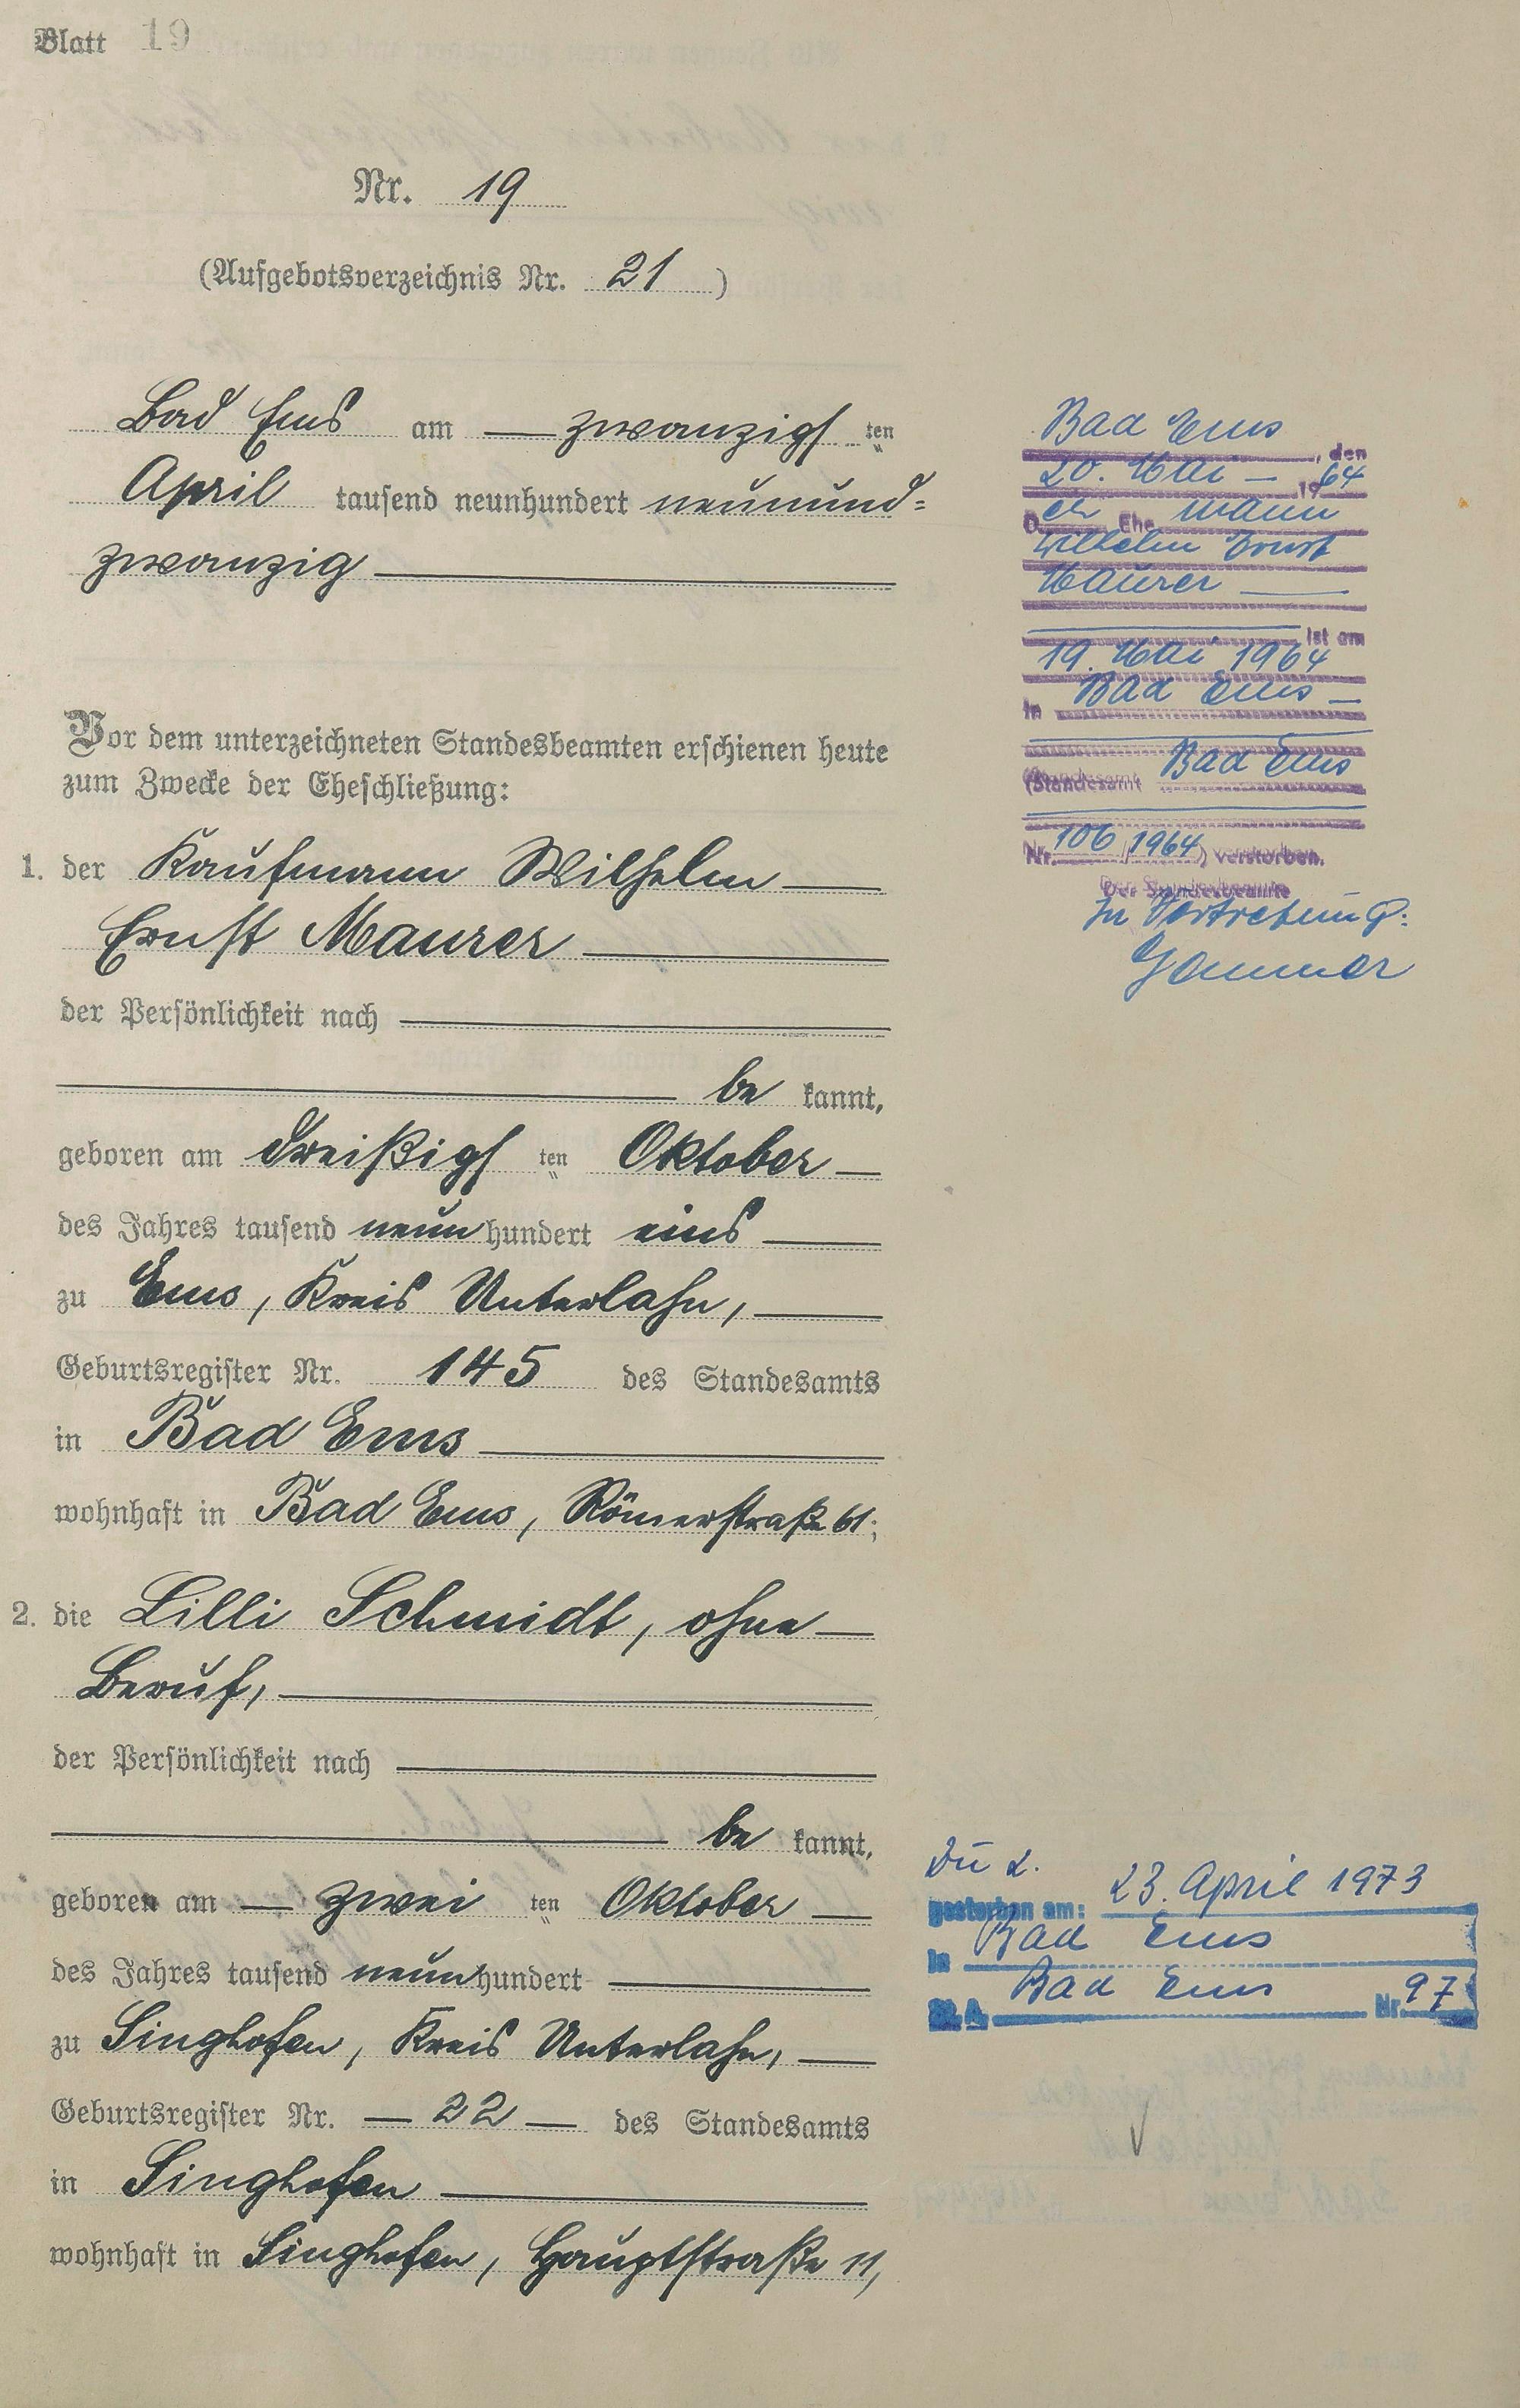 Blatt 19
Nr. 19
(Aufgebotsverzeichnis Nr. 21)
Bad Ems am zwanzigsten
April tausend neunhundert neunund=
zwanzig
Vor dem unterzeichneten Standesbeamten erschienen heute
zum Zwecke der Eheschließung:
1. der Kaufmann Wilhelm
Ernst Maurer
der Persönlichkeit nach
be kannt,
geboren am dreißigsten Oktober
des Jahres tausend neunhundert eins
zu Ems, Kreis Unterlahn,
Geburtsregister Nr. 145 des Standesamts
in Bad Ems
wohnhaft in Bad Ems, Römerstraße 61;
2. die Lilli Schmidt, ohne
Beruf,
der Persönlichkeit nach
be kannt,
geboren am zweiten Oktober
des Jahres tausend neunhundert
zu Singhofen, Kreis Unterlahn,
Geburtsregister Nr. 22 des Standesamts
in Singhofen
wohnhaft in Singhofen, Hauptstraße 11,
Bad Ems, den
20. Mai 1964
Der Ehemann
Wilhelm Ernst
Maurer
ist am
19. Mai 1964
in Bad Ems
(Standesamt Bad Ems
Nr. 106/1964) verstorben.
Der Standesbeamte
In Vertretung:
Zu 2.
gestorben am: 23. April 1973
in Bad Ems
St. A. Bad Ems Nr. 97